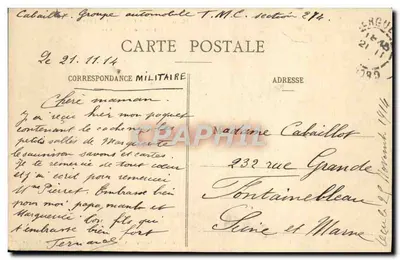 Cabaillot. Groupe automobile T.M.C. section 274
CARTE POSTALE
Le 21.11.14
CORRESPONDANCE MILITAIRE
ADRESSE
Chère maman
J'ai reçu hier mon paquet
contenant le
petites salles de Marguerite
le saucisson savons et cartes.
Je te remercie de tout cœur
et j'ai écrit pour remercier
Mme Pierret. Embrasse bien
pour moi papa, et
Marguerite ton fils qui
t'embrasse bien fort
Fernand
Madame Cabaillot
232 rue Grande
Fontainebleau
Seine et Marne
21 11
CPARTHIPHIL